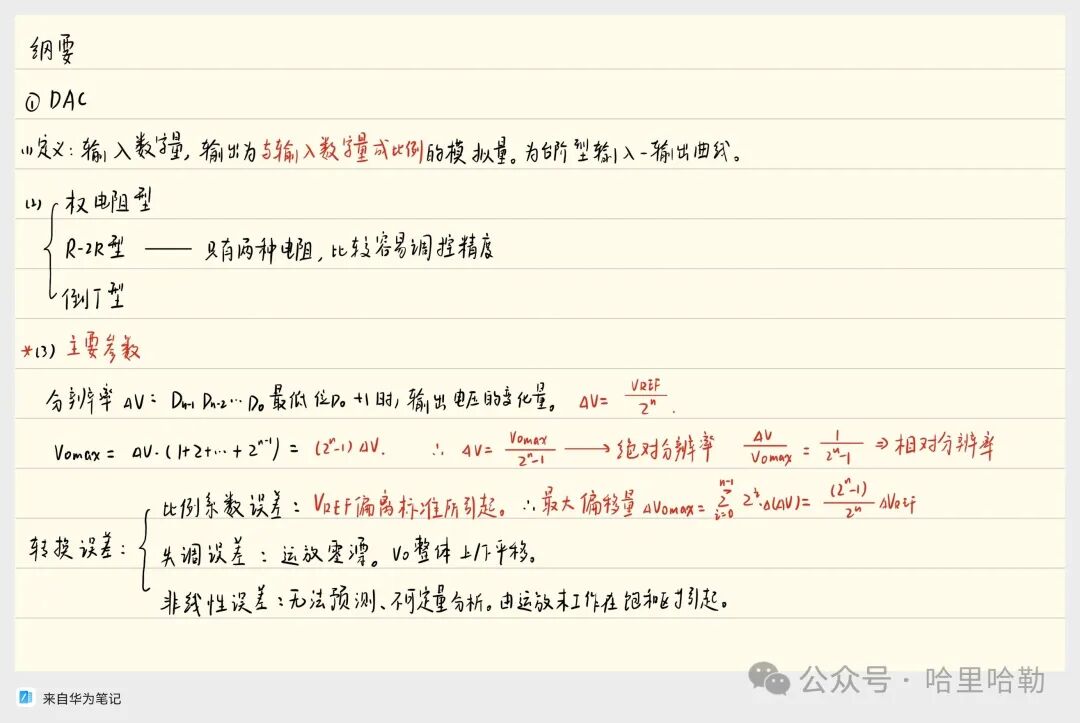 纲要
① DAC
(1)定义：输入数字量，输出为与输入数字量成比例的模拟量。为台阶型输入-输出曲线。
(2) 权电阻型
R-2R型 —— 只有两种电阻，比较容易调控精度
倒T型
*(3) 主要参数
分辨率 ΔV： Dn-1 Dn-2 … D0 最低位D0 +1时，输出电压的变化量。 ΔV= VREF/2^n .
Vomax = ΔV·(1+2+…+2^(n-1)) = (2^n-1) ΔV. ∴ ΔV= Vomax/(2^n-1) → 绝对分辨率 ΔV/Vomax = 1/(2^n-1) ⇒ 相对分辨率
转换误差： 比例系数误差：VREF偏离标准所引起。∴最大偏移量 ΔVomax= Σ(i=0, n-1) 2^i·Δ(ΔV)= (2^n-1)/2^n ΔVREF
失调误差：运放零漂。Vo整体上/下平移。
非线性误差：无法预测、不可定量分析。由运放未工作在饱和区时引起。
来自华为笔记
公众号 · 哈里哈勒